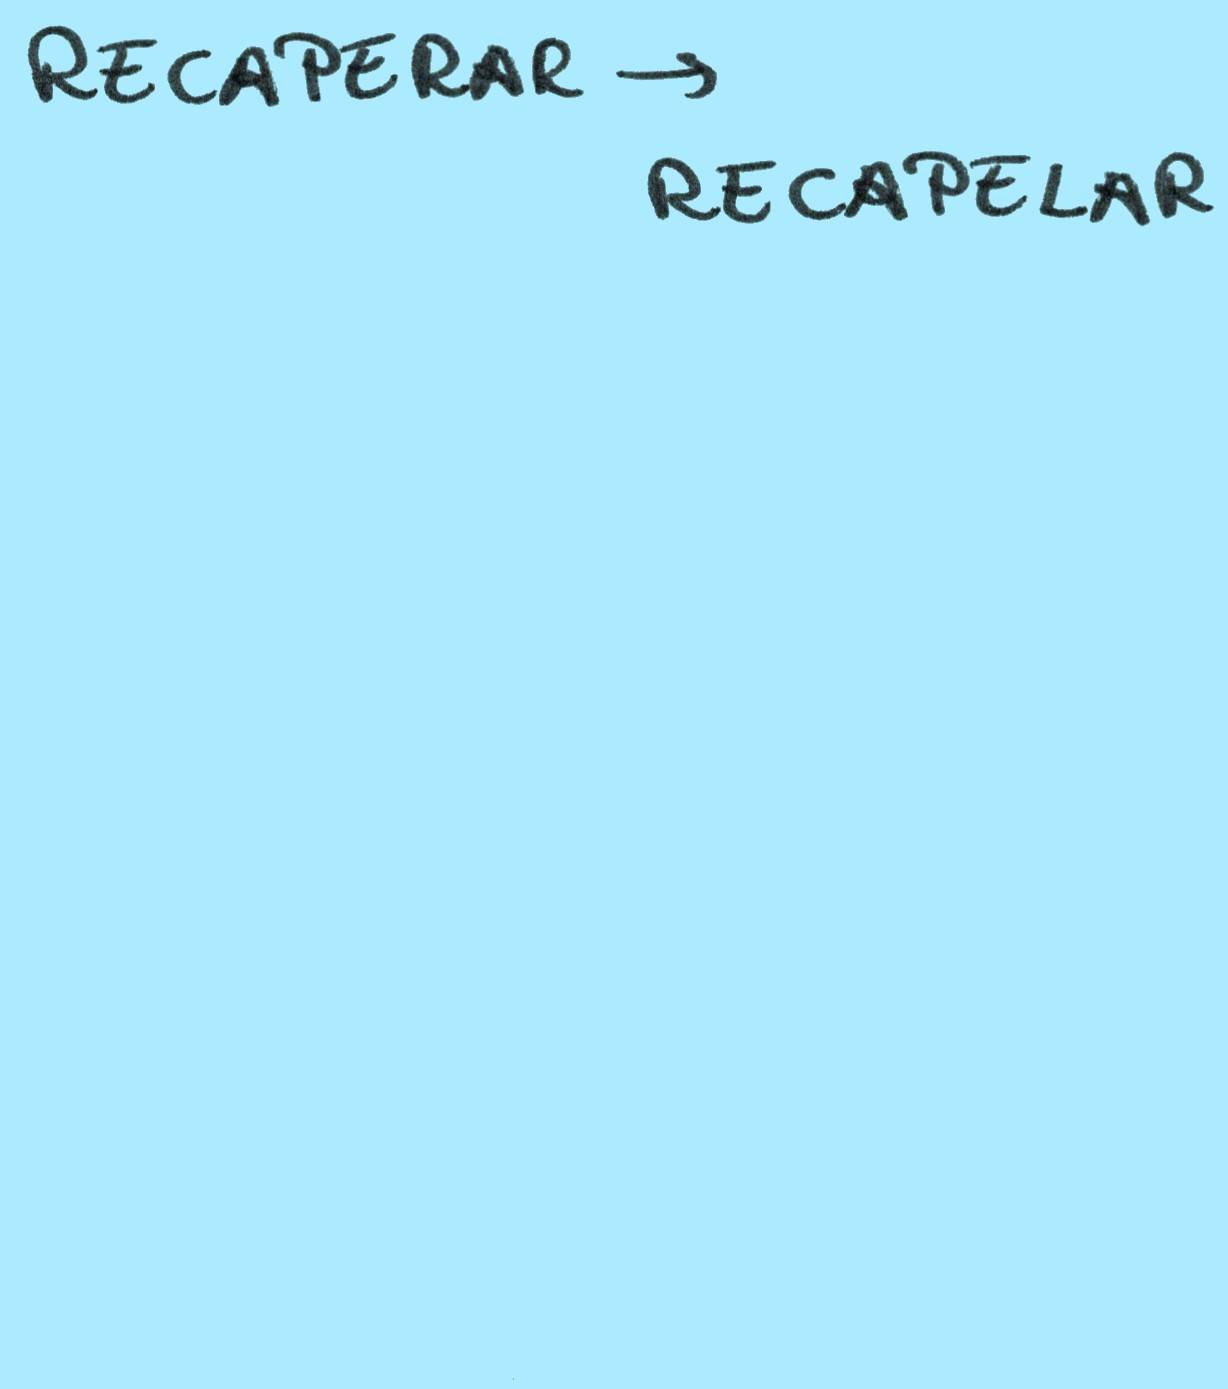 RECAPERAR →
RECAPELAR